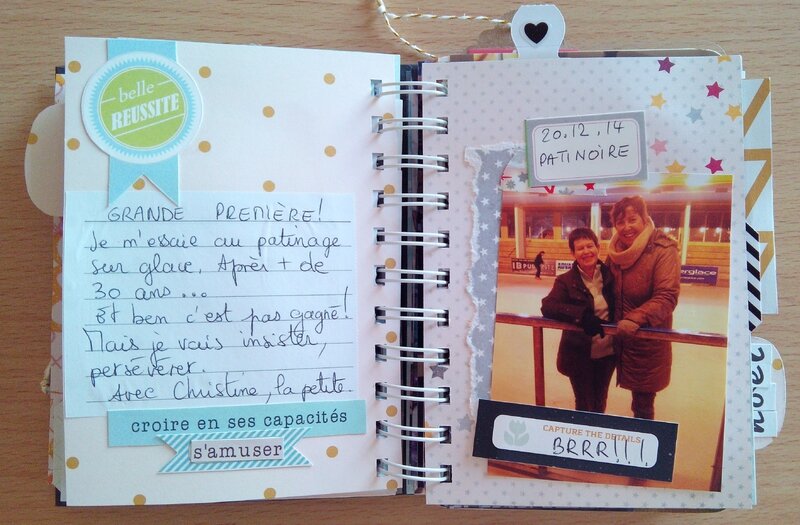 belle
REUSSITE
GRANDE PREMIÈRE!
Je m'essaie au patinage
sur glace. Après + de
30 ans...
Et ben c'est pas gagné!
Mais je vais insister,
persévérer.
Avec Christine, la petite.
croire en ses capacités
s'amuser
20.12.14
PATINOIRE
erglace
CAPTURE THE DETAILS
BRRR!!!
noël